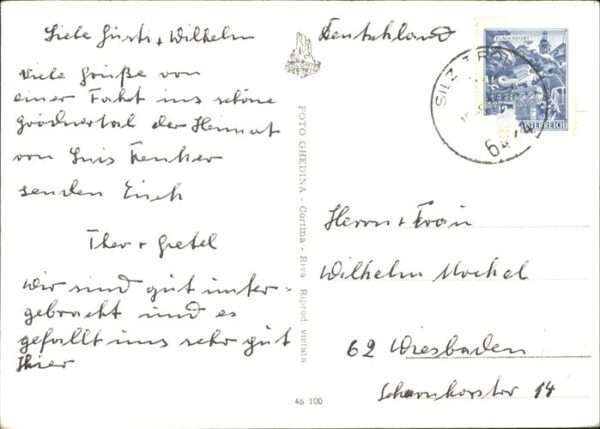 Liebe Gusti + Wilhelm
Viele Grüße von
einer Fahrt ins schöne
Grödnertal der Heimat
von Luis Trenker
senden Euch
Theo + Gretel
Wir sind gut unter-
gebracht und es
gefällt uns sehr gut
hier
FOTO GHEDINA - Cortina - Rres Riprod vietata
46 100
Deutschland
SILZ TIROL
6424
ÖSTERREICH
Herrn + Frau
Wilhelm Mockel
62 Wiesbaden
Scharnhorststr 14